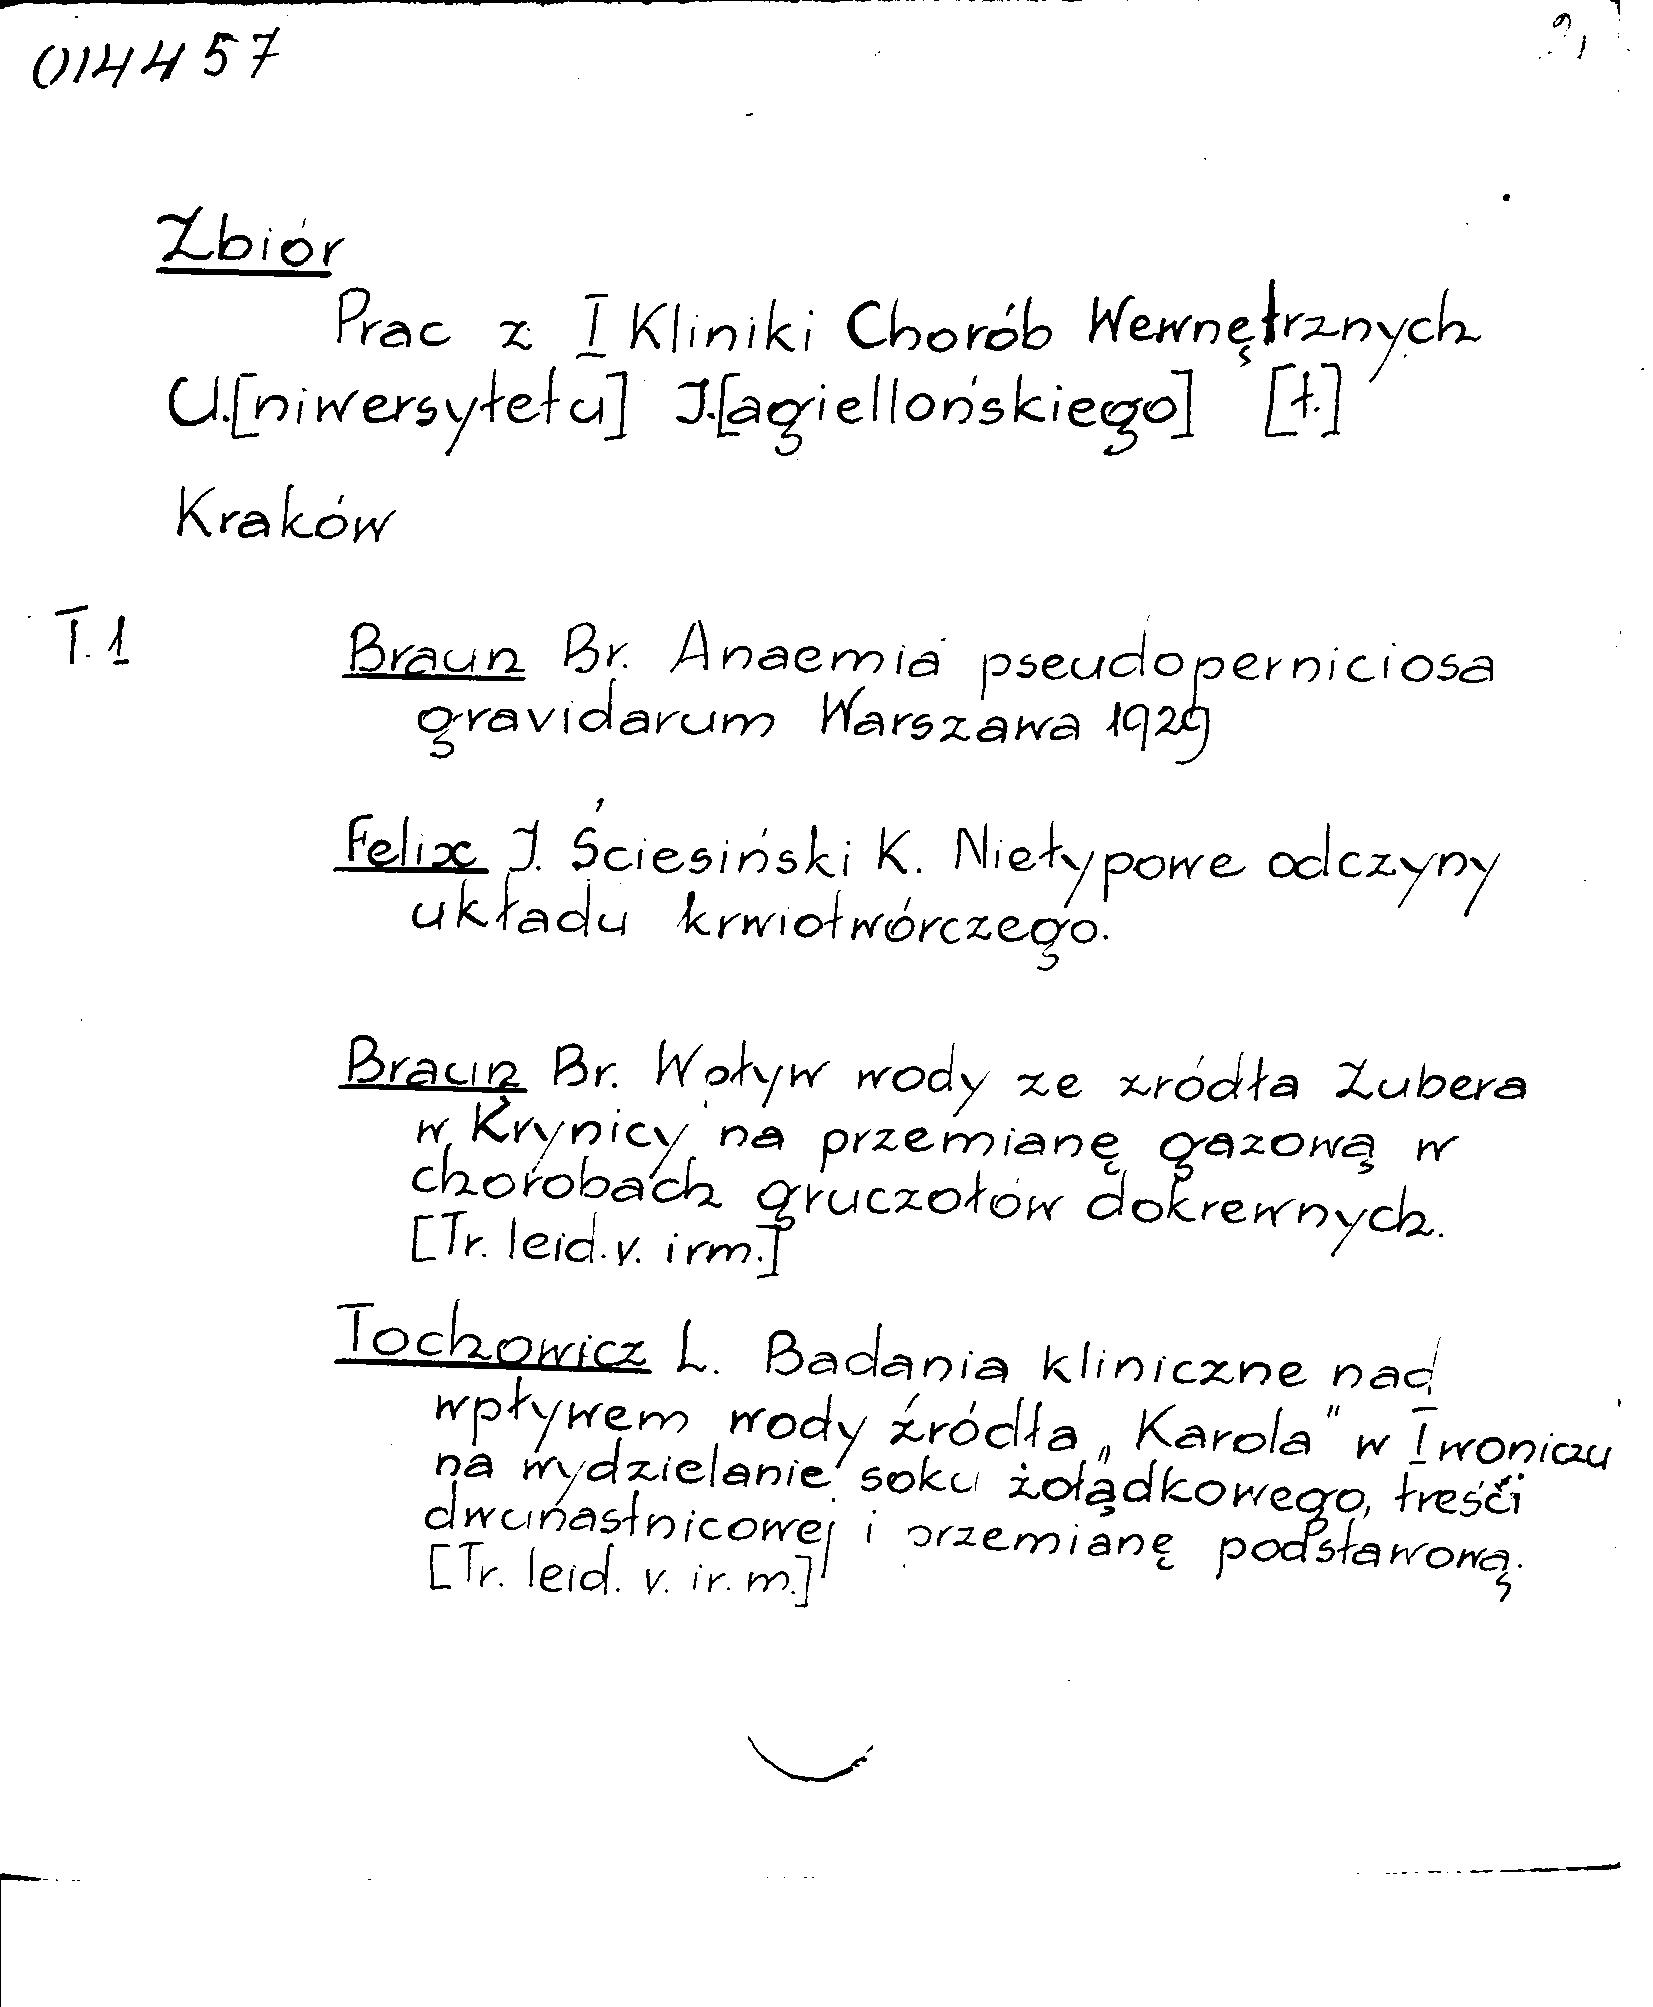 014457
Zbiór
Prac z I Kliniki Chorób Wewnętrznych
U.[niwersytetu] J.[agiellońskiego] [t.]
Kraków
T. 1 Braun Br. Anaemia pseudoperniciosa
gravidarum Warszawa 1929
Felix J. Ściesiński K. Nietypowe odczyny
układu krwiotwórczego.
Braun Br. Wpływ wody ze zródła Zubera
w Krynicy na przemianę gazową w
chorobach gruczołów dokrewnych.
[Tr. leid. v. irm.]
Tochowicz L. Badania kliniczne nad
wpływem wody źródła „Karola" w Iwoniczu
na wydzielanie soku żołądkowego, treści
dwunastnicowej i przemianę podstawową.
[Tr. leid. v. ir. m.]